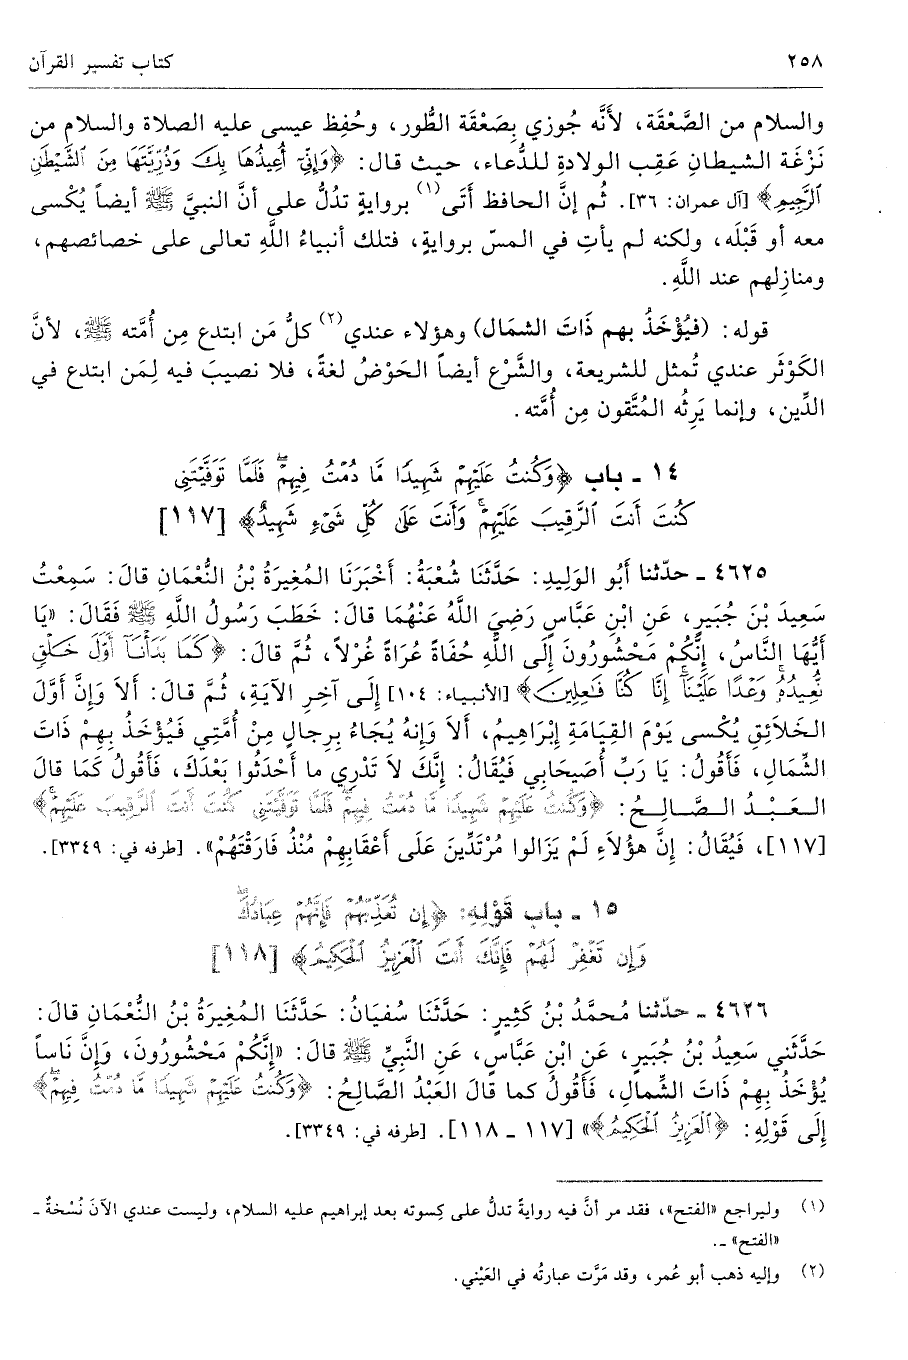 ٢٥٨ كتاب تفسير القرآن
والسلام من الصَّعْقَة، لأَنَّه جُوزي بِصَعْقَة الطُّور، وحُفِظ عيسى عليه الصلاة والسلام من
نَزْغَة الشيطانِ عَقِب الولادةِ للدُّعاء، حيث قال: ﴿وَإِنِّيٓ أُعِيذُهَا بِكَ وَذُرِّيَّتَهَا مِنَ ٱلشَّيْطَٰنِ
ٱلرَّجِيمِ﴾ [آل عمران: ٣٦]. ثُم إنَّ الحافظ أَتَى(١) بروايةٍ تدُلُّ على أنَّ النبيَّ ﷺ أيضاً يُكْسى
معه أو قَبْلَه، ولكنه لم يأتِ في المسّ بروايةٍ، فتلك أنبياءُ اللَّهِ تعالى على خصائصهم،
ومنازِلهم عند اللَّهِ.
قوله: (فَيُؤْخَذُ بهم ذَاتَ الشمَال) وهؤلاء عندي(٢) كلُّ مَن ابتدع مِن أُمَّته ﷺ، لأنَّ
الكَوْثَر عندي تُمثل للشريعة، والشَّرْع أيضاً الحَوْضُ لغةً، فلا نصيبَ فيه لِمَن ابتدع في
الدِّين، وإنما يَرِثُه المُتَّقون مِن أُمَّته.
١٤ ـ باب ﴿وَكُنتُ عَلَيْهِمْ شَهِيدًا مَّا دُمْتُ فِيهِمْ ۖ فَلَمَّا تَوَفَّيْتَنِى
كُنتَ أَنتَ ٱلرَّقِيبَ عَلَيْهِمْ ۚ وَأَنتَ عَلَىٰ كُلِّ شَىْءٍ شَهِيدٌ﴾ [١١٧]
٤٦٢٥ ـ حدّثنا أَبُو الوَلِيدِ: حَدَّثَنَا شُعْبَةُ: أَخْبَرَنَا المُغِيرَةُ بْنُ النُّعْمَانِ قالَ: سَمِعْتُ
سَعِيدَ بْنَ جُبَيرٍ، عَنِ ابْنِ عَبَّاسٍ رَضِيَ اللَّهُ عَنْهُمَا قالَ: خَطَبَ رَسُولُ اللَّهِ ﷺ فَقَالَ: «يَا
أَيُّهَا النَّاسُ، إِنَّكُمْ مَحْشُورُونَ إِلَى اللَّهِ حُفَاةً عُرَاةً غُرْلاً، ثُمَّ قالَ: ﴿كَمَا بَدَأْنَآ أَوَّلَ خَلْقٍ
نُّعِيدُهُۥ ۚ وَعْدًا عَلَيْنَآ ۚ إِنَّا كُنَّا فَٰعِلِينَ﴾ [الأنبياء: ١٠٤] إِلَى آخِرِ الآيَةِ، ثُمَّ قالَ: أَلاَ وَإِنَّ أَوَّلَ
الخَلاَئِقِ يُكْسى يَوْمَ القِيَامَةِ إِبْرَاهِيمُ، أَلاَ وَإِنهُ يُجَاءُ بِرِجالٍ مِنْ أُمَّتِي فَيُؤْخَذُ بِهِمْ ذَاتَ
الشِّمَالِ، فَأَقُولُ: يَا رَبِّ أُصَيحَابِي فَيُقَالُ: إِنَّكَ لاَ تَدْرِي ما أَحْدَثُوا بَعْدَكَ، فَأَقُولُ كَمَا قالَ
العَبْدُ الصَّالِحُ: ﴿وَكُنتُ عَلَيْهِمْ شَهِيدًا مَّا دُمْتُ فِيهِمْ ۖ فَلَمَّا تَوَفَّيْتَنِى كُنتَ أَنتَ ٱلرَّقِيبَ عَلَيْهِمْ ۚ﴾
[١١٧]، فَيُقَالُ: إِنَّ هؤُلاَءِ لَمْ يَزَالوا مُرْتَدِّينَ عَلَى أَعْقَابِهِمْ مُنْذُ فَارَقْتَهُمْ». [طرفه في: ٣٣٤٩].
١٥ ـ باب قَوْلِهِ: ﴿إِن تُعَذِّبْهُمْ فَإِنَّهُمْ عِبَادُكَ ۖ
وَإِن تَغْفِرْ لَهُمْ فَإِنَّكَ أَنتَ ٱلْعَزِيزُ ٱلْحَكِيمُ﴾ [١١٨]
٤٦٢٦ ـ حدّثنا مُحَمَّدُ بْنُ كَثِيرٍ: حَدَّثَنَا سُفيَانُ: حَدَّثَنَا المُغِيرَةُ بْنُ النُّعْمَانِ قالَ:
حَدَّثَني سَعِيدُ بْنُ جُبَيرٍ، عَنِ ابْنِ عَبَّاسٍ، عَنِ النَّبِيِّ ﷺ قالَ: «إِنَّكُمْ مَحْشُورُونَ، وَإِنَّ نَاساً
يُؤْخَذُ بِهِمْ ذَاتَ الشِّمالِ، فَأَقُولُ كما قالَ العَبْدُ الصَّالِحُ: ﴿وَكُنتُ عَلَيْهِمْ شَهِيدًا مَّا دُمْتُ فِيهِمْ ۖ﴾
إِلَى قَوْلِهِ: ﴿ٱلْعَزِيزُ ٱلْحَكِيمُ﴾» [١١٧ ـ ١١٨]. [طرفه في: ٣٣٤٩].
(١) وليراجع «الفتح»، فقد مر أنَّ فيه روايةً تدلُّ على كِسوته بعد إبراهيم عليه السلام، وليست عندي الآنَ نُسْخةٌ ـ
«الفتح» ـ.
(٢) وإليه ذهب أبو عُمر، وقد مَرَّت عبارتُه في العَيْني.